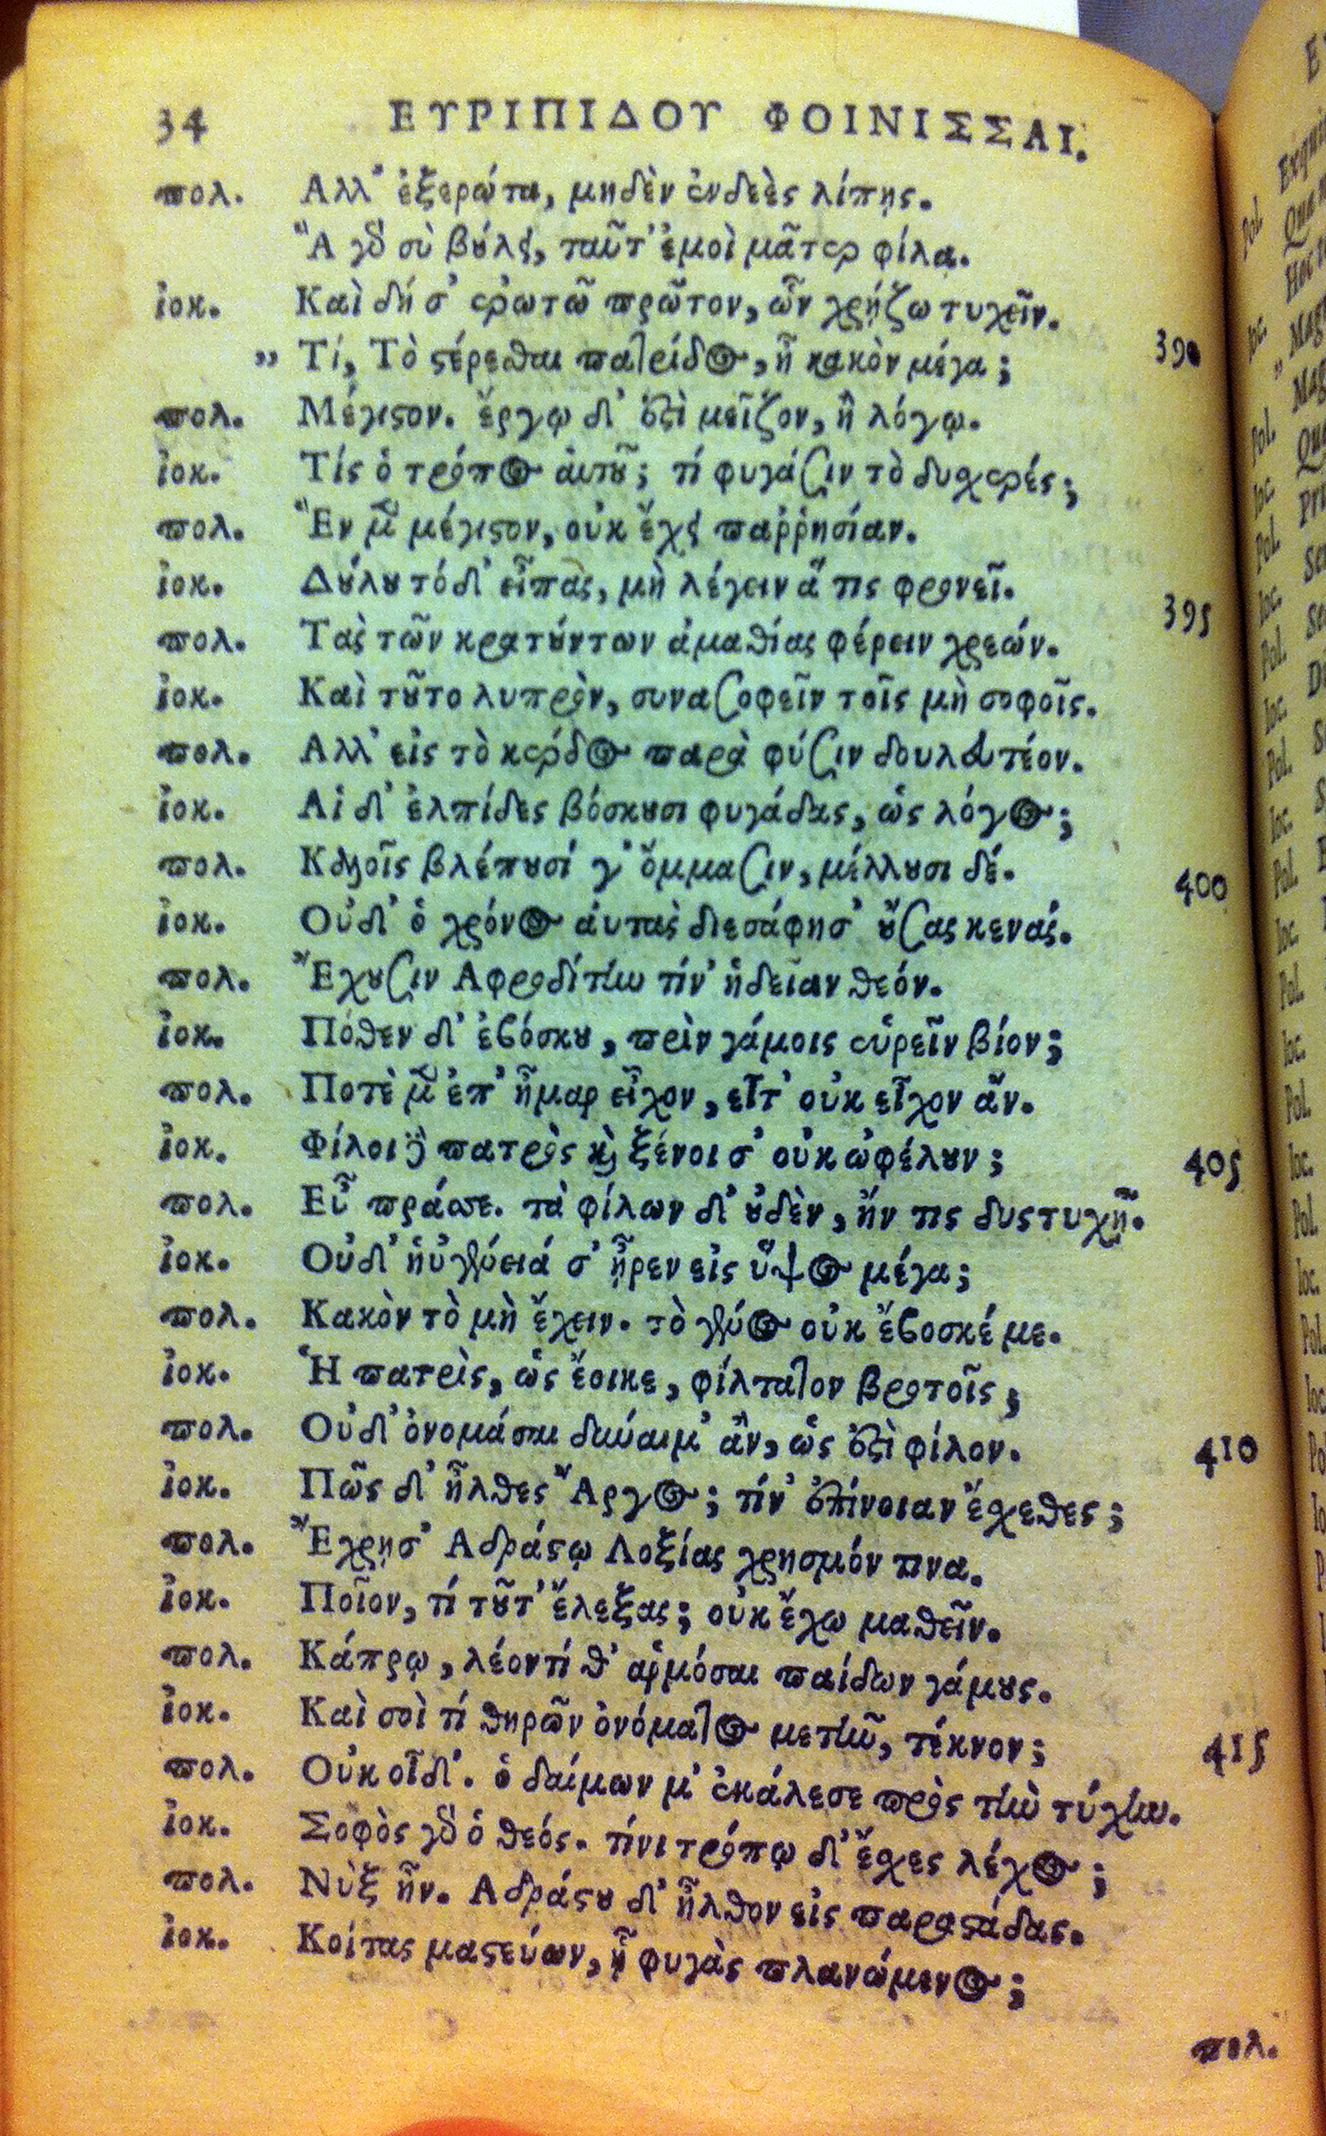 34 ΕΥΡΙΠΙΔΟΥ ΦΟΙΝΙΣΣΑΙ.
πολ. Αλλ' ἐξερώτα, μηδὲν ἐνδεὲς λίπῃς.
Ἃ γὰρ σὺ βούλει, ταῦτ' ἐμοὶ μᾶτερ φίλα.
ἰοκ. Καὶ δή σ' ἐρωτῶ πρῶτον, ὧν χρῄζω τυχεῖν.
„ Τί, Τὸ στέρεσθαι πατρίδος, ἦ κακὸν μέγα; 390
πολ. Μέγιστον. ἔργῳ δ' ἐστὶ μεῖζον, ἢ λόγῳ.
ἰοκ. Τίς ὁ τρόπος αὐτοῦ; τί φυγάσιν τὸ δυσχερές;
πολ. Ἓν μὲν μέγιστον, οὐκ ἔχει παῤῥησίαν.
ἰοκ. Δούλου τόδ' εἶπας, μὴ λέγειν ἅ τις φρονεῖ.
πολ. Τὰς τῶν κρατούντων ἀμαθίας φέρειν χρεών. 395
ἰοκ. Καὶ τοῦτο λυπρὸν, συνασοφεῖν τοῖς μὴ σοφοῖς.
πολ. Αλλ' εἰς τὸ κέρδος παρὰ φύσιν δουλευτέον.
ἰοκ. Αἱ δ' ἐλπίδες βόσκουσι φυγάδας, ὡς λόγος;
πολ. Καλοῖς βλέπουσί γ' ὄμμασιν, μέλλουσι δέ.
ἰοκ. Οὐδ' ὁ χρόνος αὐτὰς διεσάφησ' οὔσας κενάς. 400
πολ. Ἔχουσιν Αφροδίτην τίν' ἡδεῖαν θεόν.
ἰοκ. Πόθεν δ' ἐβόσκου, πρὶν γάμοις εὑρεῖν βίον;
πολ. Ποτὲ μὲν ἐπ' ἦμαρ εἶχον, εἶτ' οὐκ εἶχον ἄν.
ἰοκ. Φίλοι δὲ πατρὸς καὶ ξένοι σ' οὐκ ὠφέλουν; 405
πολ. Εὖ πράσσε. τὰ φίλων δ' οὐδὲν, ἤν τις δυστυχῇ.
ἰοκ. Οὐδ' ηὑγένειά σ' ᾖρεν εἰς ὕψος μέγα;
πολ. Κακὸν τὸ μὴ ἔχειν. τὸ γένος οὐκ ἔβοσκέ με.
ἰοκ. Ἡ πατρὶς, ὡς ἔοικε, φίλτατον βροτοῖς;
πολ. Οὐδ' ὀνομάσαι δυναίμ' ἂν, ὡς ἐστὶ φίλον. 410
ἰοκ. Πῶς δ' ἦλθες Ἄργος; τίν' ἐπίνοιαν ἔσχεθες;
πολ. Ἔχρησ' Αδράστῳ Λοξίας χρησμόν τινα.
ἰοκ. Ποῖον, τί τοῦτ' ἔλεξας; οὐκ ἔχω μαθεῖν.
πολ. Κάπρῳ, λέοντί θ' ἁρμόσαι παίδων γάμους.
ἰοκ. Καὶ σοὶ τί θηρῶν ὀνόματος μετῆν, τέκνον; 415
πολ. Οὐκ οἶδ'. ὁ δαίμων μ' ἐκάλεσε πρὸς τὴν τύχην.
ἰοκ. Σοφὸς γὰρ ὁ θεός. τίνι τρόπῳ δ' ἔσχες λέχος;
πολ. Νὺξ ἦν. Αδράστου δ' ἦλθον εἰς παραστάδας.
ἰοκ. Κοίτας μαστεύων, ἢ φυγὰς πλανώμενος;
πολ.